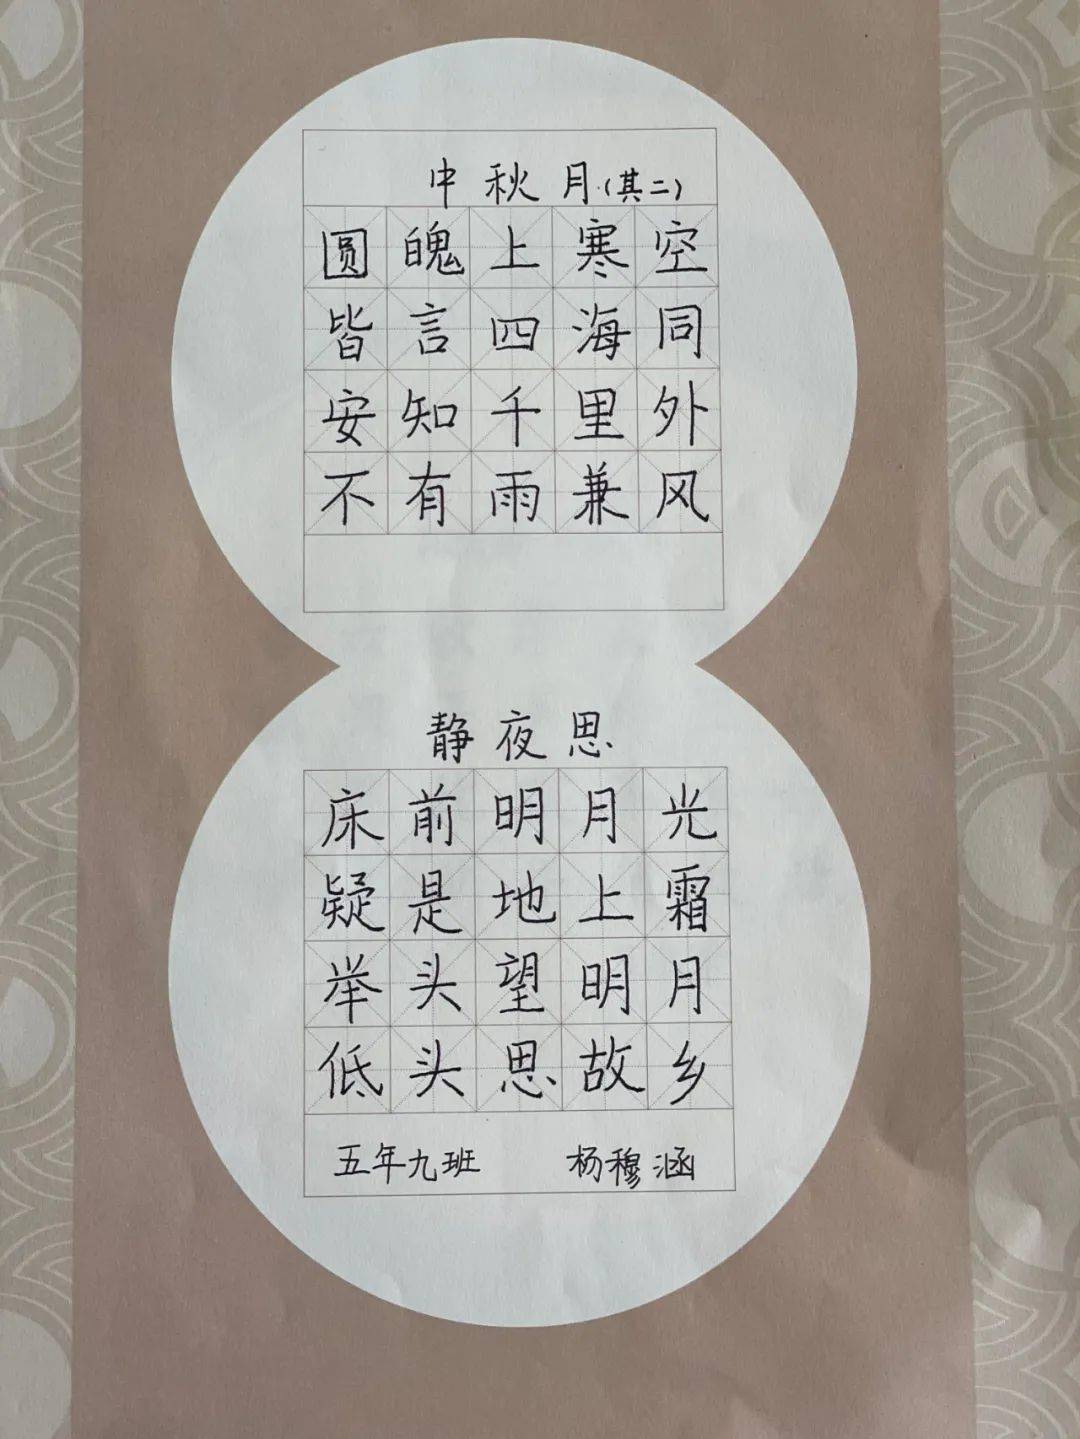 中秋月(其二)
圆魄上寒空
皆言四海同
安知千里外
不有雨兼风
静夜思
床前明月光
疑是地上霜
举头望明月
低头思故乡
五年九班 杨穆涵